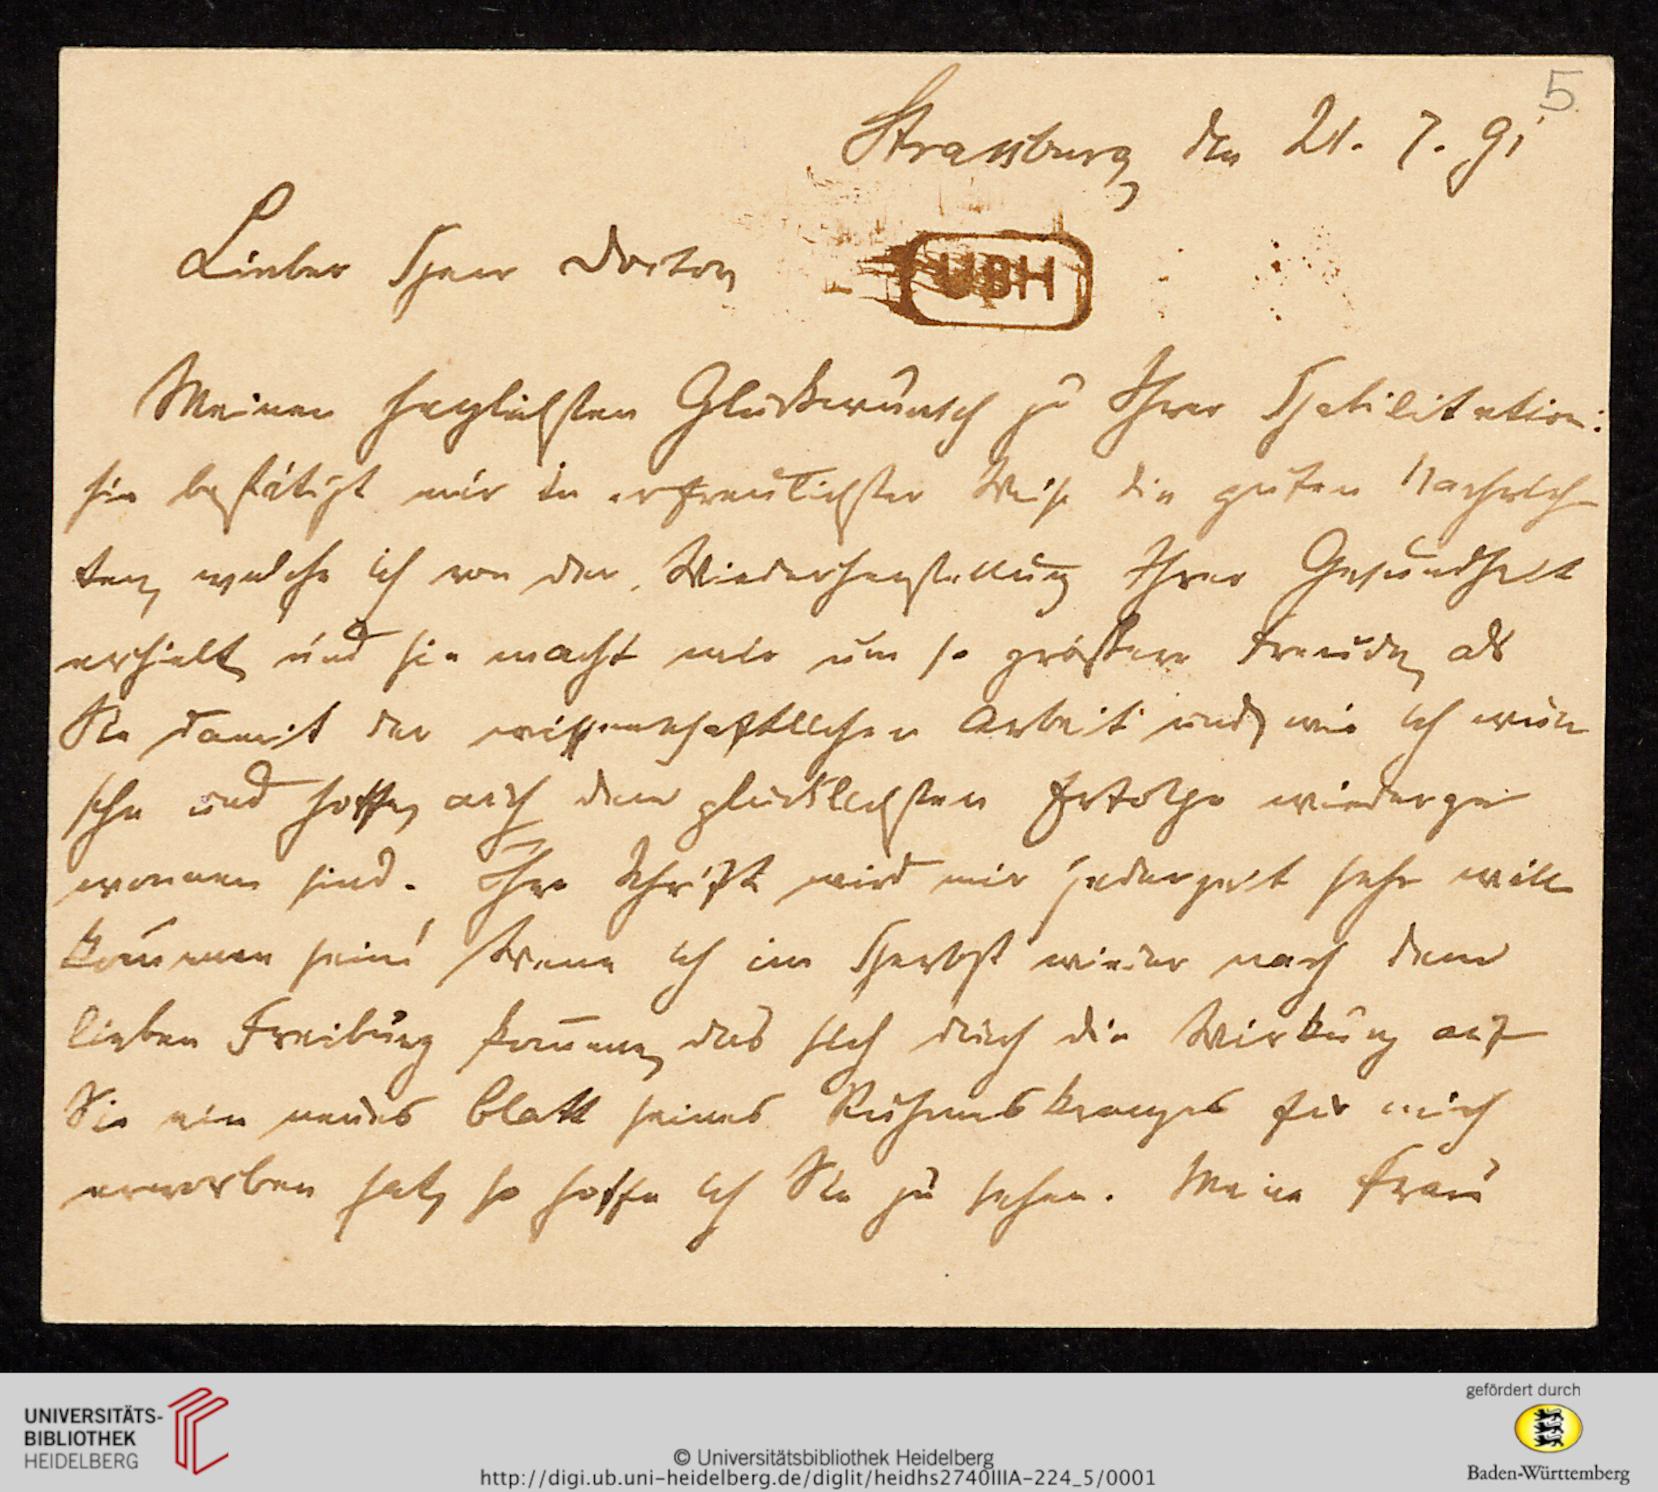 5.
Strassburg den 21. 7. 91
Lieber Herr Doctor,
UBH
Meinen herzlichsten Glückwunsch zu Ihrer Habilitation:
sie bestätigt mir in erfreulichster Weise die guten Nachrich-
ten, welche ich von der Wiederherstellung Ihrer Gesundheit
erhielt, und sie macht mir um so grössere Freude, als
Sie damit der wissenschaftlichen Arbeit und, wie ich wün-
sche und hoffe, auch dem glücklichsten Erfolge wiederge-
wonnen sind. Ihre Schrift wird mir jederzeit sehr will-
kommen sein! Wenn ich im Herbst wieder nach dem
lieben Freiburg komme, das sich durch die Wirkung auf
Sie ein neues Blatt seines Ruhmeskranzes für mich
erworben hat, so hoffe ich Sie zu sehen. Meine Frau
UNIVERSITÄTS-
BIBLIOTHEK
HEIDELBERG
© Universitätsbibliothek Heidelberg
http://digi.ub.uni-heidelberg.de/diglit/heidhs2740IIIA-224_5/0001
gefördert durch
Baden-Württemberg